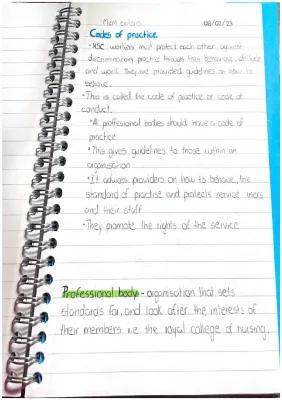 08/02/23
Codes of practice.
• HSC workers must protect each other against
discriminatory practise through their behaviour, attitude
and work. They are provided guidelines on how to
behave.
• This is called the code of practice or code of
conduct.
• All professional bodies should have a code of
practice
• This gives guidelines to those within an
organisation
• It advises providers on how to behave, the
standard of practise and protects service users
and their staff
• They promote the rights of the service
Professional body - organisation that sets
standards for, and look after the interests of
their members i.e the royal college of nursing.